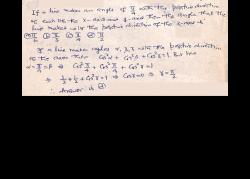 If a line makes an angle of π/4 with the positive direction
of each of the x-axis and y-axis then the angle that the
line makes with the positive direction of the z-axis is
① π/6 ② π/3 ③ π/4 ④ π/2
If a line makes angles α, β, γ with the positive direction
of the axes then Cos²α + Cos²β + Cos²γ = 1. But here
α = π/4 = β ⇒ Cos²π/4 + Cos²π/4 + Cos²γ = 1
⇒ 1/2 + 1/2 + Cos²γ = 1 ⇒ Cosγ = 0 ⇒ γ = π/2
∴ Answer is ④